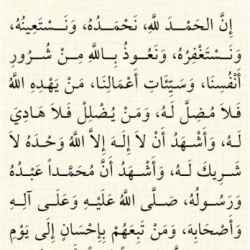 إِنَّ الحَمْـدَ للَّهِ، نَحْمَـدُهُ، وَنَسْـتَعِينُهُ،
وَنَسْـتَغْفِرُهُ، وَنَعُـوذُ بِـاللَّهِ مِـنْ شُـرُورِ
أَنْفُسِنَا، وَسَيِّئَاتِ أَعْمَالِنَا، مَنْ يَهْدِهِ اللَّهُ
فَلاَ مُضِلَّ لَـهُ، وَمَـنْ يُضْلِلْ فَـلاَ هَـادِيَ
لَـهُ، وَأَشْـهَدُ أَنْ لاَ إِلَـهَ إِلاَّ اللَّهُ وَحْـدَهُ لاَ
شَـرِيكَ لَـهُ، وَأَشْـهَدُ أَنَّ مُحَمَّـداً عَبْـدُهُ
وَرَسُـولُهُ، صَـلَّى اللَّهُ عَلَيْـهِ وَعَلَـى آلِـهِ
وَأَصْحَابِهِ، وَمَنْ تَبِعَهُمْ بِإِحْسَانٍ إِلَى يَوْمِ